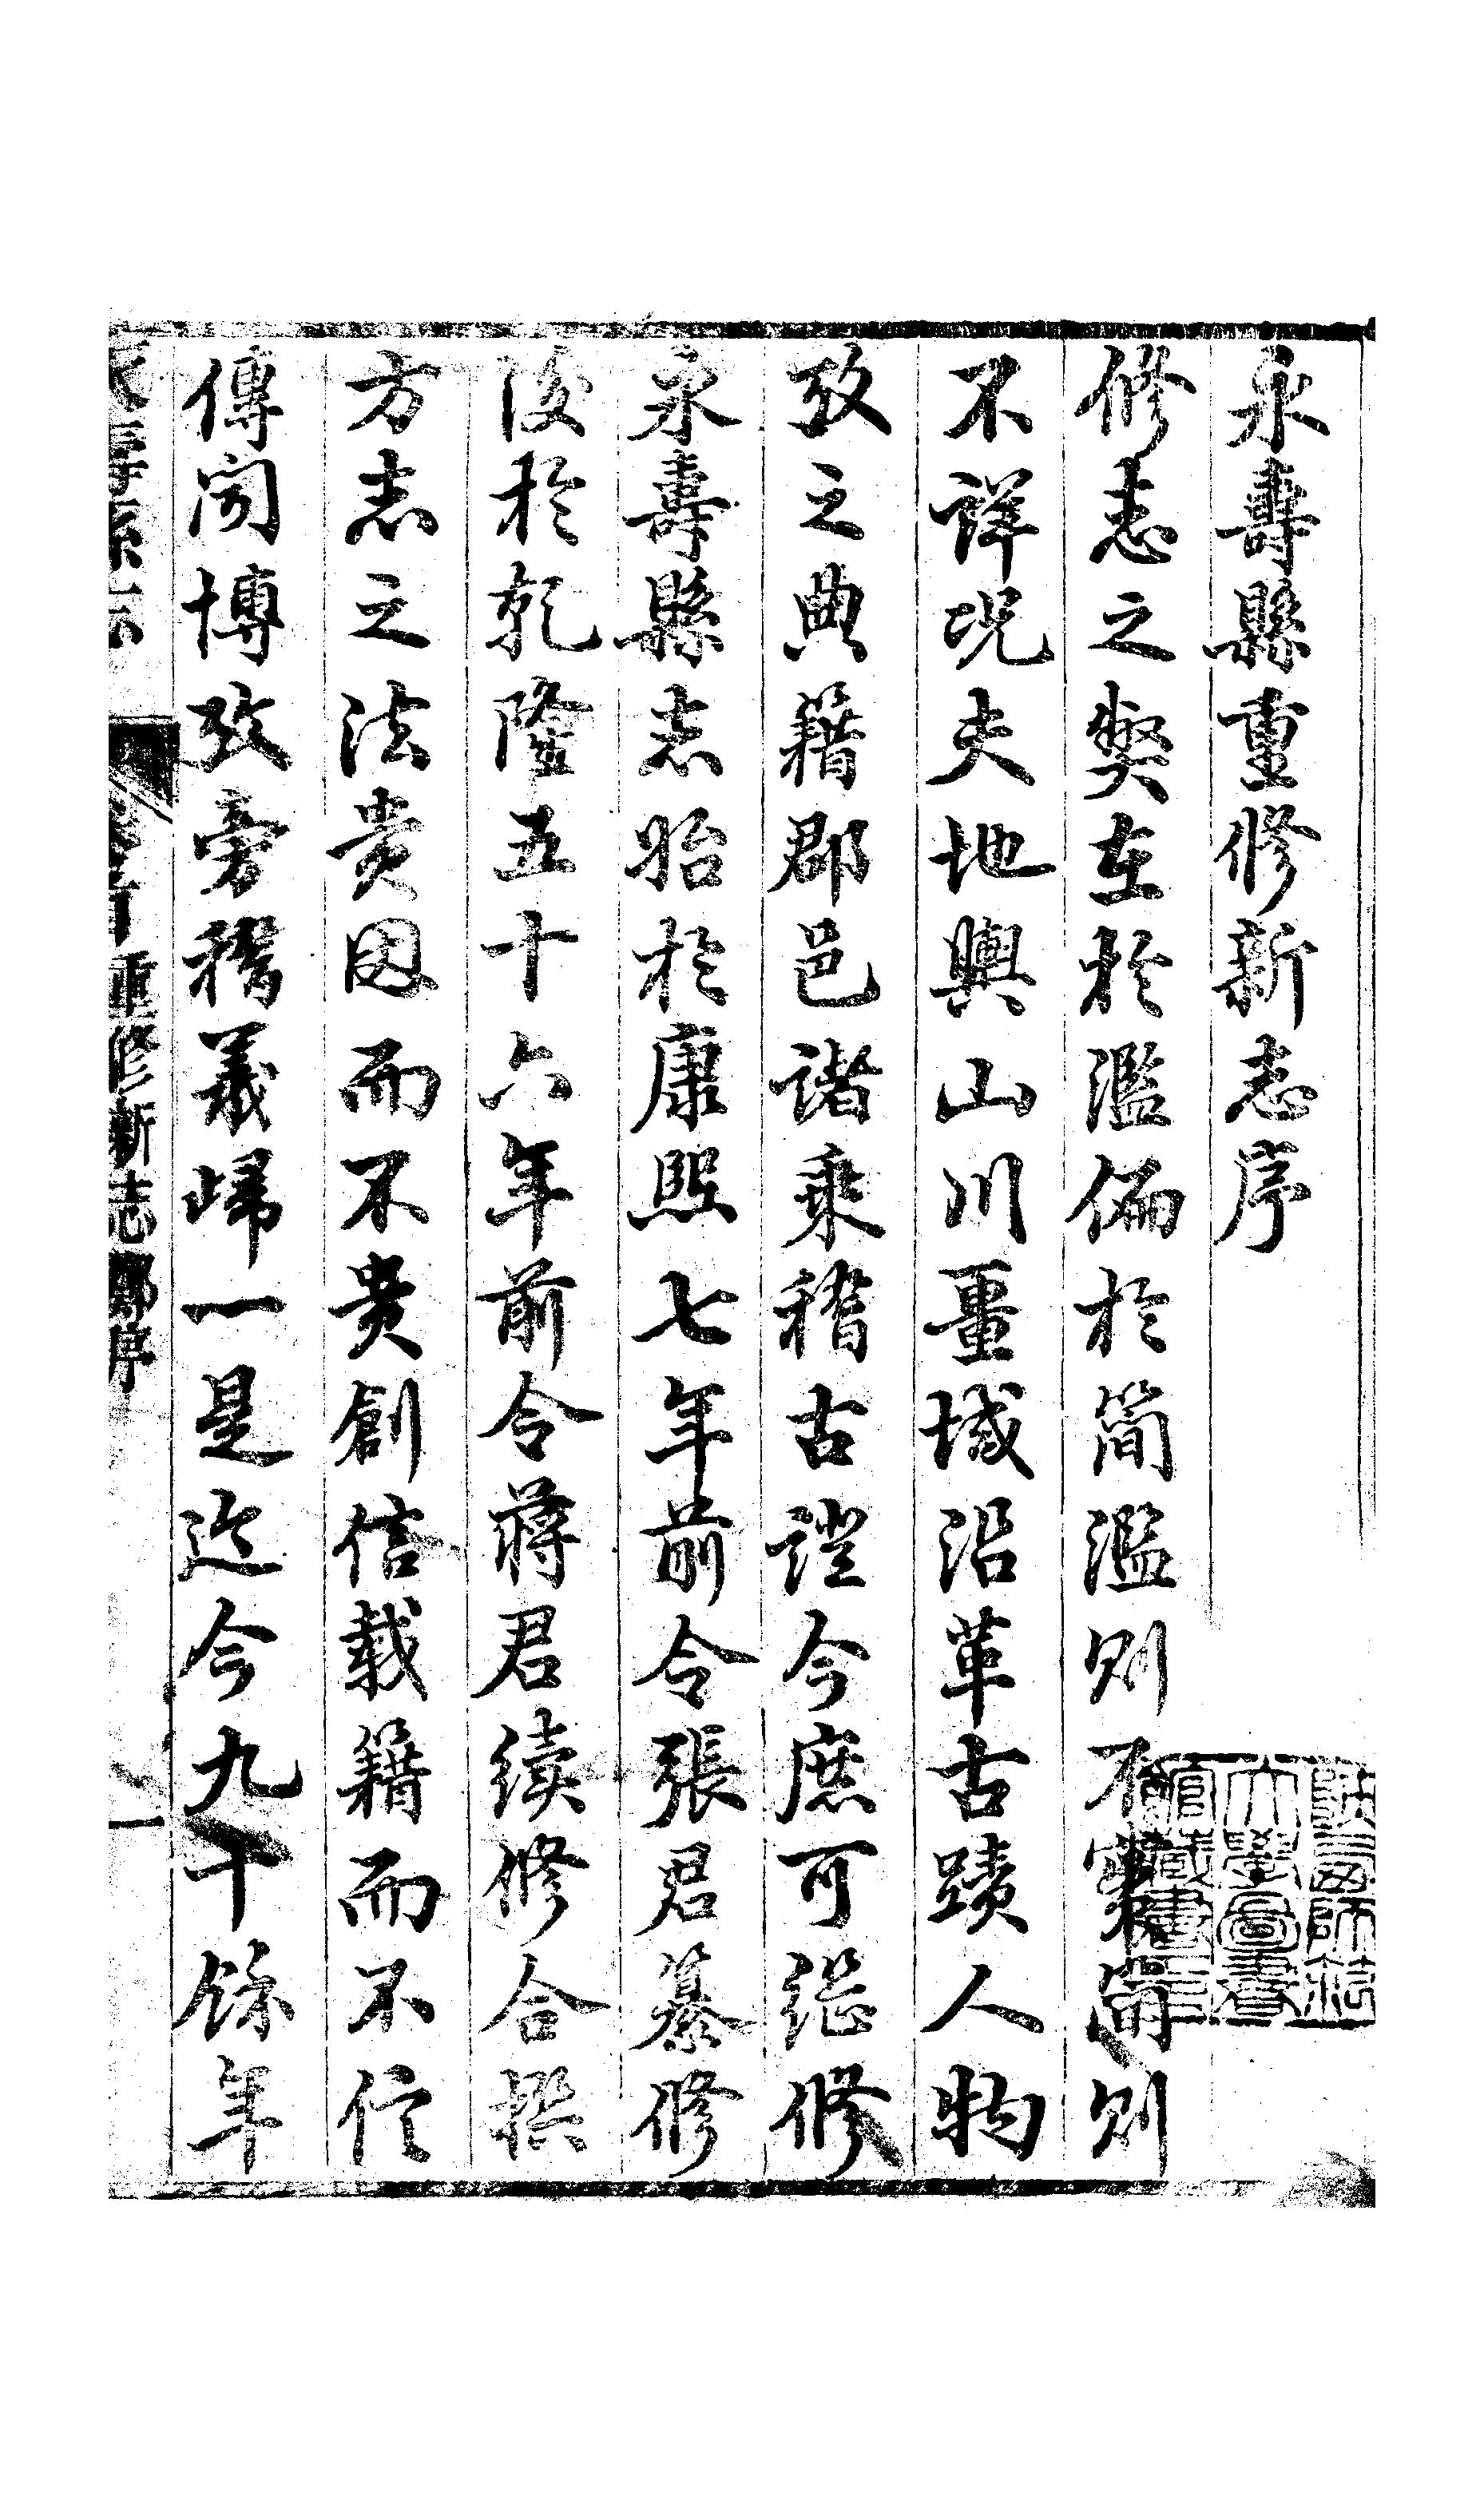 永壽縣重修新志序
修志之弊在於濫偏於簡濫則不實簡則
不詳况夫地輿山川畺域沿革古蹟人物
攷之典籍郡邑諸乘稽古證今庶可繼修
永壽縣志昉於康熙七年前令張君纂修
後於乾隆五十六年前令蔣君續修合撰
方志之法貴因而不貴創信載籍而不信
傳聞博攷旁稽義歸一是迄今九十餘年
永壽縣志
重修新志鄭序
一
陝西師範
大學圖書
館藏書